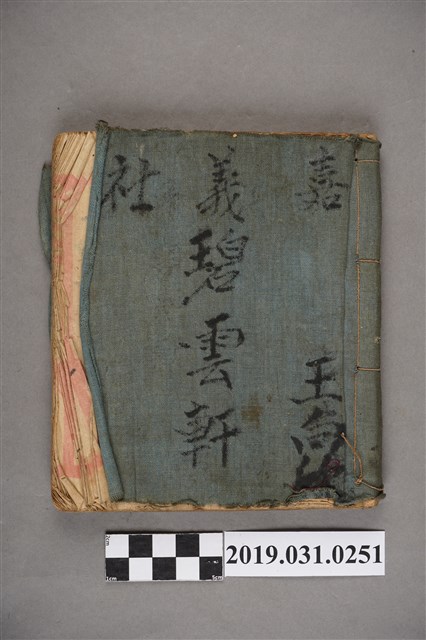 嘉義社
碧雲軒
王
2019.031.0251
2cm
1cm
5cm